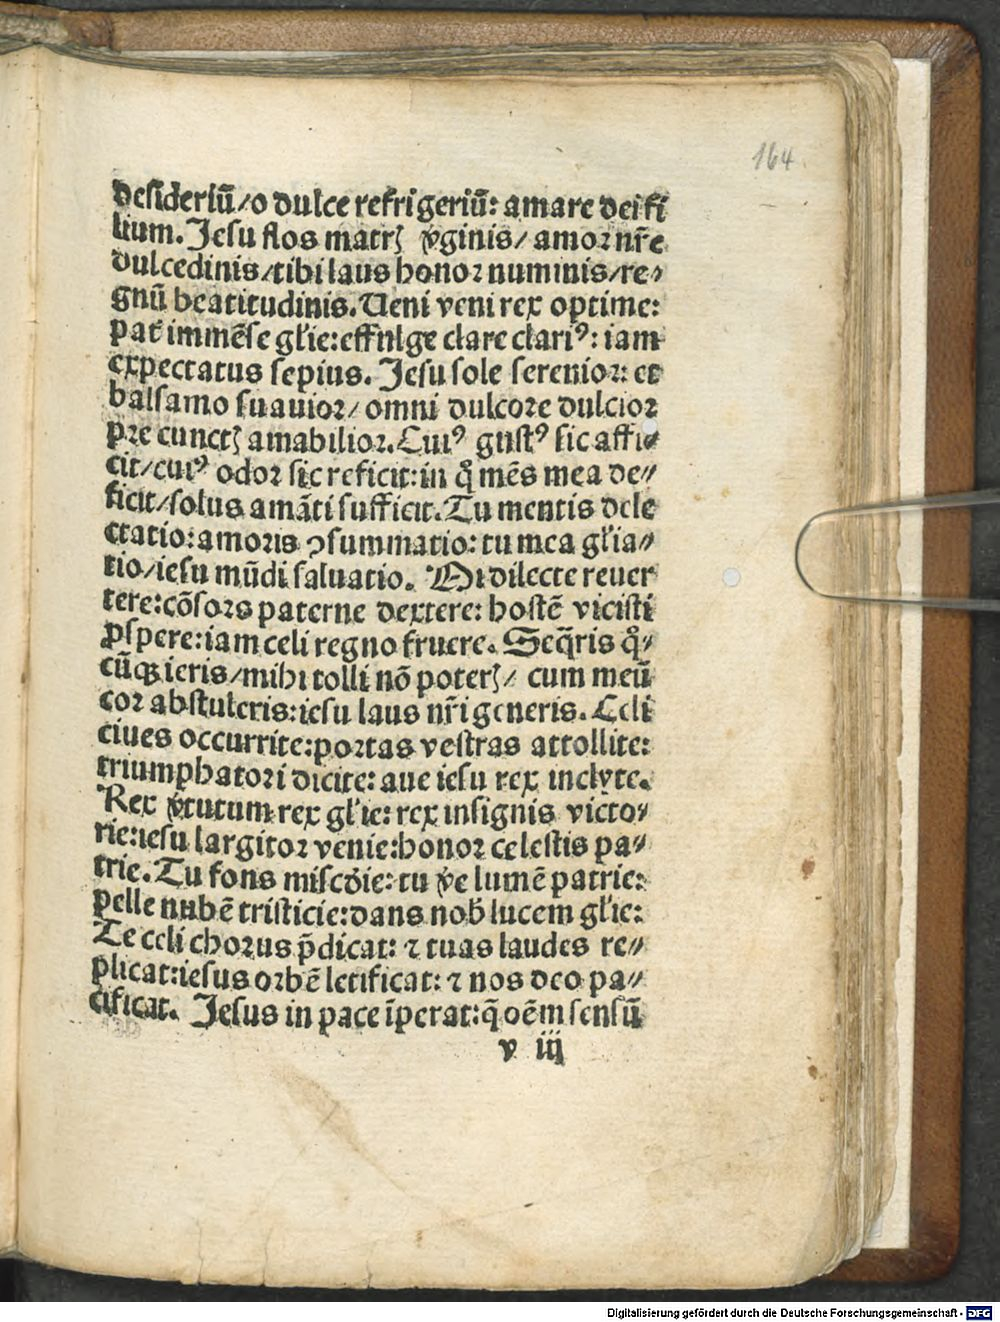 164
desideriū/o dulce refrigeriū: amare dei fi
lium. Jesu flos matrꝫ v̾ginis/ amoꝛ nr̄e
dulcedinis/tibi laus honoꝛ numinis/re⸗
gnū beatitudinis. Ueni veni rex optime:
pat̄ immēse gl̄ie: effulge clare clariꝰ: iam
expectatus sepius. Jesu sole serenioꝛ: et
balsamo suauioꝛ/ omni dulcoꝛe dulcioꝛ
pꝛe cunctꝫ amabilioꝛ. Cuiꝰ gustꝰ sic affi⸗
cit/cuiꝰ odoꝛ sic reficit: in q̄ mēs mea de⸗
ficit/solus amāti sufficit. Tu mentis dele
ctatio: amoꝛis ꝯsummatio: tu mea gl̄ia⸗
tio/iesu mūdi saluatio. Mi dilecte reuer
tere: cōsoꝛs paterne dextere: hostē vicisti
ꝓspere: iam celi regno fruere. Seq̄ris qͦ⸗
cūqꝫ ieris/mihi tolli nō poterꝭ/ cum meū
coꝛ abstuleris: iesu laus nr̄i generis. Celi
ciues occurrite: poꝛtas vestras attollite:
triumphatoꝛi dicite: aue iesu rex inclyte.
Rex v̾tutum rex gl̄ie: rex insignis victo⸗
rie: iesu largitoꝛ venie: honoꝛ celestis pa⸗
trie. Tu fons mis̄cd̄ie: tu v̾e lumē patrie:
pelle nubē tristicie: dans nob̄ lucem gl̄ie:
Te celi choꝛus p̄dicat: ⁊ tuas laudes re⸗
plicat: iesus oꝛbē letificat: ⁊ nos deo pa⸗
cificat. Jesus in pace īperat: q̄ oēm sensū
v iij
Digitalisierung gefördert durch die Deutsche Forschungsgemeinschaft - DFG